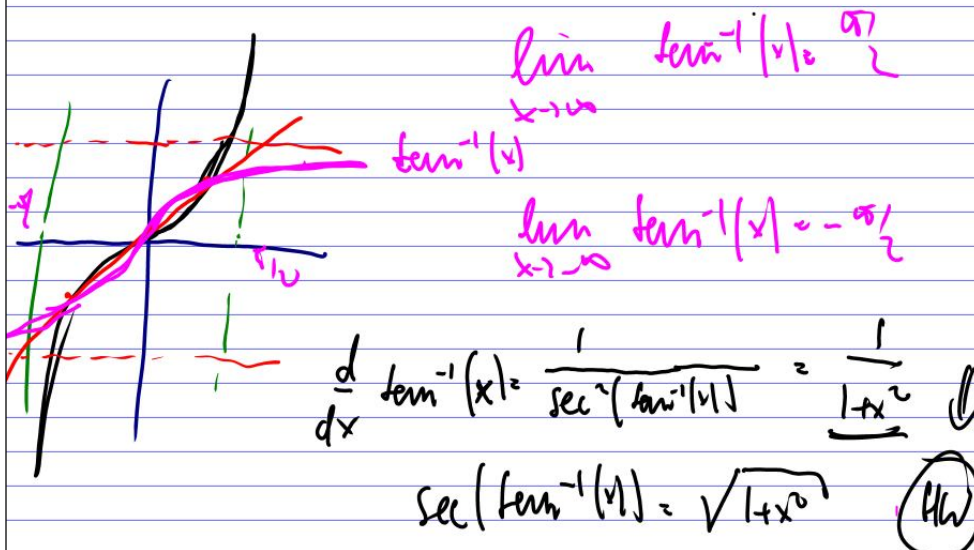 lim tan⁻¹(x) = π/2
x→∞
tan⁻¹(x)
lim tan⁻¹(x) = -π/2
x→-∞
π/2
d/dx tan⁻¹(x) = 1/sec²(tan⁻¹(x)) = 1/1+x²
sec(tan⁻¹(x)) = √1+x²
HW